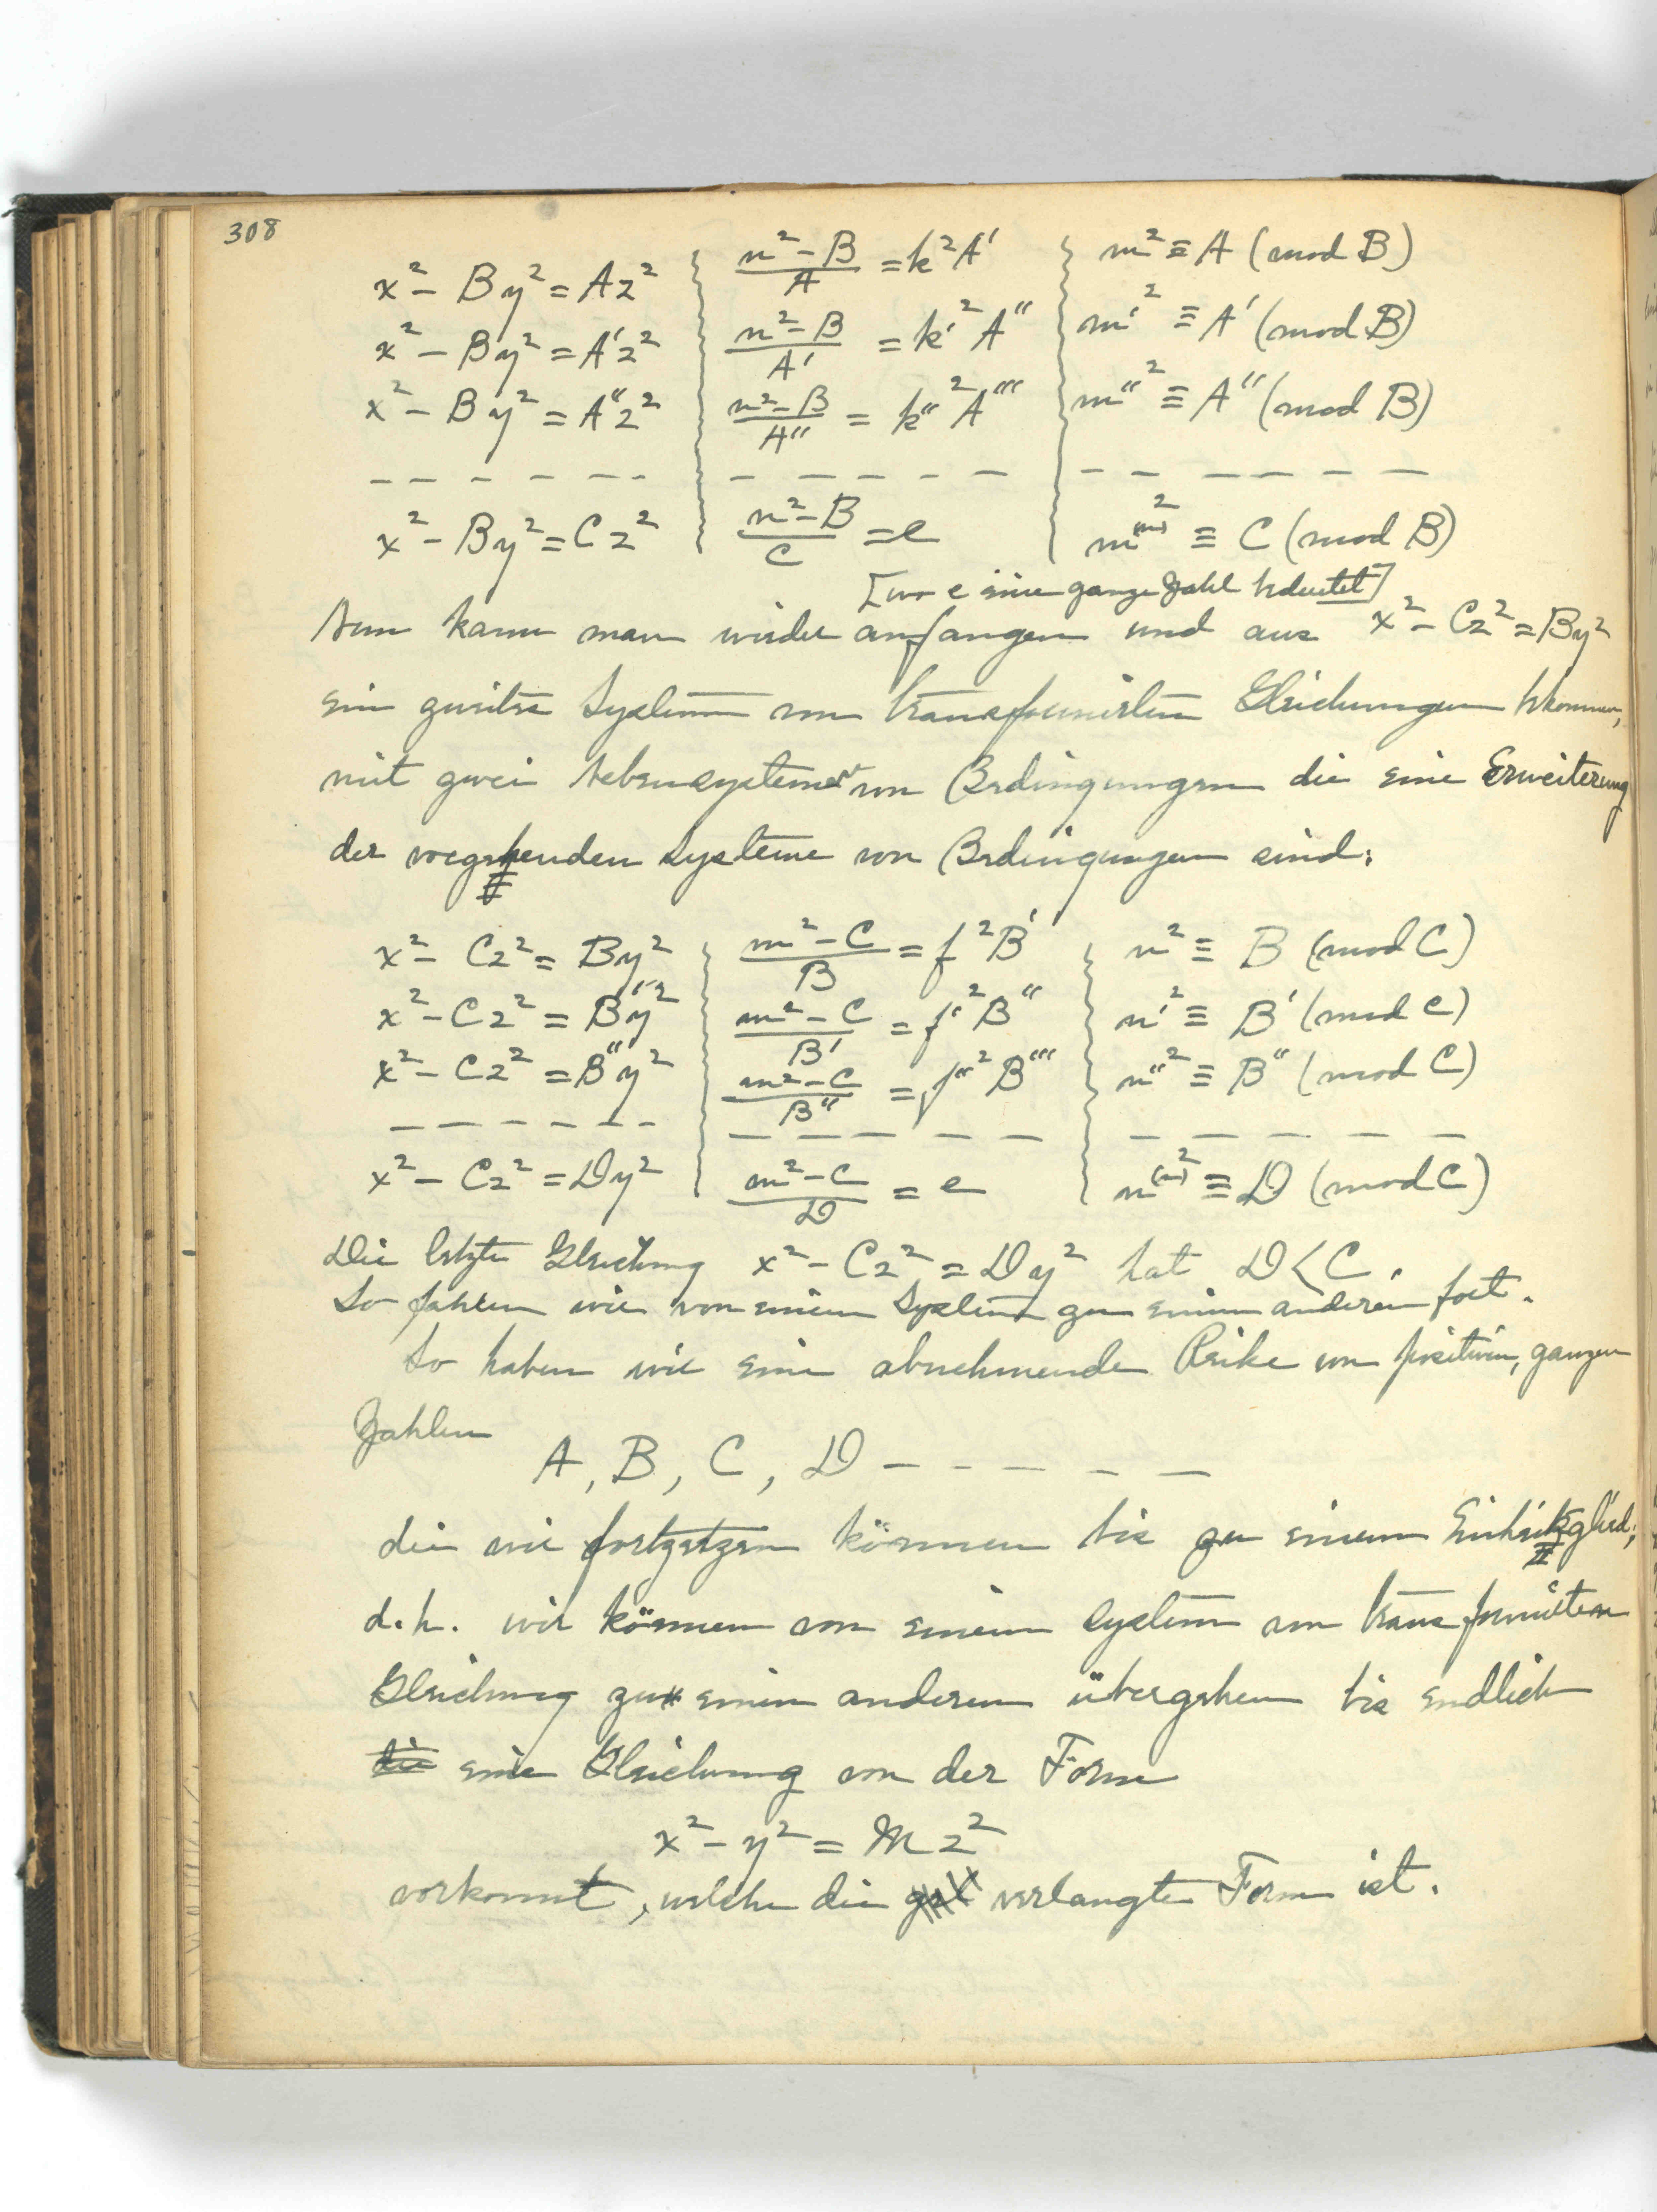 308
x² - By² = Az² { (n² - B)/A = k²A' { m² ≡ A (mod B)
x² - By² = A'z² { (n² - B)/A' = k'²A'' { m'² ≡ A' (mod B)
x² - By² = A''z² { (n² - B)/A'' = k''²A''' { m''² ≡ A'' (mod B)
- - - - - - - - - - - - - - - - - -
x² - By² = Cz² { (n² - B)/C = e { m⁽ⁿ⁾² ≡ C (mod B)
[wo e eine ganze Zahl bedeutet]
Nun kann man wieder anfangen und aus x² - Cz² = By²
ein zweites System von transformirten Gleichungen bekommen,
mit zwei Nebensystemen von Bedingungen die eine Erweiterung
der vorgehenden Systeme von Bedingungen sind:
x² - Cz² = By² { (m² - C)/B = f²B' { n² ≡ B (mod C)
x² - Cz² = B'y² { (m² - C)/B' = f'²B'' { n'² ≡ B' (mod C)
x² - Cz² = B''y² { (m² - C)/B'' = f''²B''' { n''² ≡ B'' (mod C)
- - - - - - - - - - - - - - - - - -
x² - Cz² = Dy² { (m² - C)/D = e { n⁽ⁿ⁾² ≡ D (mod C)
Die letzte Gleichung x² - Cz² = Dy² hat D < C.
So fahren wir von einem System zu einem anderen fort.
So haben wir eine abnehmende Reihe von positiven, ganzen
Zahlen
A, B, C, D - - - - -
die wir fortzetzen können bis zu einem Einheitsglied;
d.h. wir können von einem System von transformirten
Gleichung zu einem anderen übergehen bis endlich
eine Gleichung von der Form
x² - y² = Mz²
vorkommt, welche die verlangte Form ist.